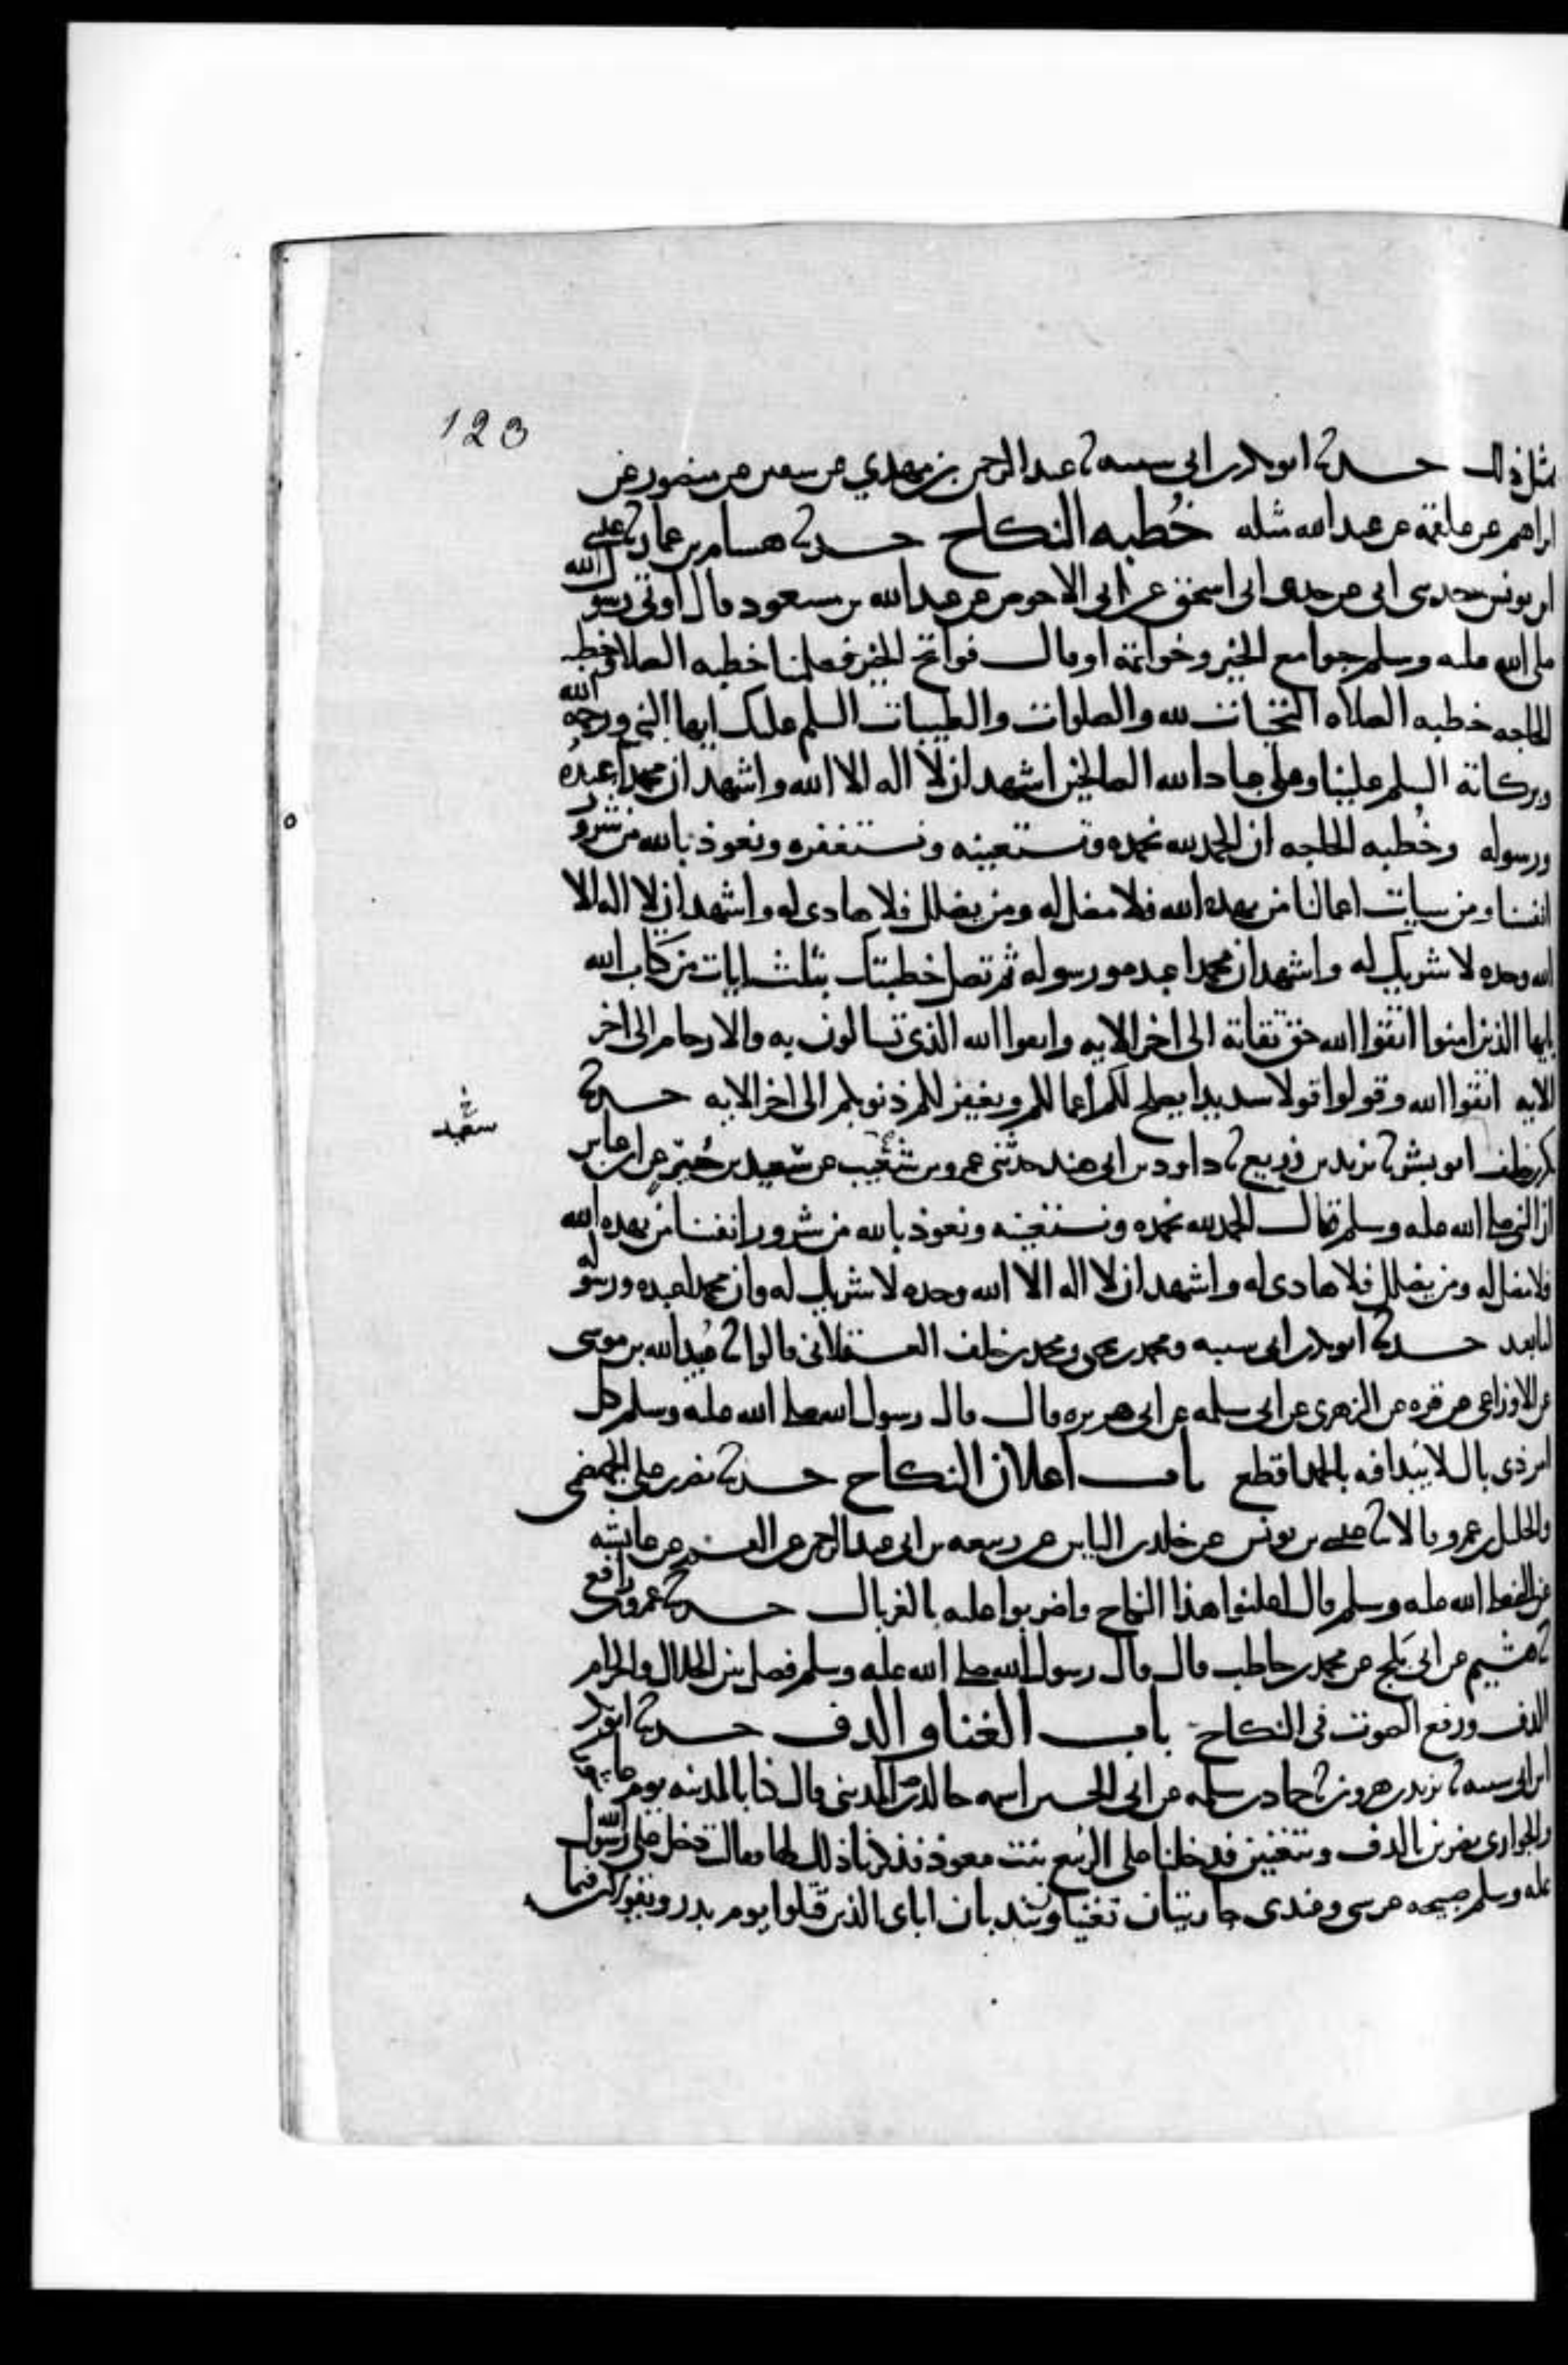 123
مثل ذلك حدثنا ابو بكر بن ابى شيبه ثنا عبد الرحمن بن مهدي عن سفين عن منصور عن
ابراهيم عن علقمة عن عبد الله مثله خُطبه النكاح حدثنا هشام بن عمار ثنا عيسى
ابن يونس حدثنى ابى عن جدى ابى اسحق عن ابى الاحوص عن عبد الله بن مسعود قال اوتى رسول الله
صلى الله عليه وسلم جوامع الخير وخواتمه او قال فواتح الخير فعلمنا خطبه الصلاه وخطبه
الحاجه خطبه الصلاه التحيات لله والصلوات والطيبات السلم عليك ايها النبي ورحمه الله
وبركاته السلم علينا وعلى عباد الله الصالحين اشهد ان لا اله الا الله واشهد ان محمدا عبدُه
ورسوله وخُطبه الحاجه ان الحمد لله نحمده ونستعينه ونستغفره ونعوذ بالله من شرور
انفسنا ومن سيات اعمالنا من يهده الله فلا مضل له ومن يضلل فلا هادى له واشهد ان لا اله الا
الله وحده لا شريك له واشهد ان محمدا عبده ورسوله ثم تصل خطبتك بثلث ايات من كتاب الله
يايها الذين امنوا اتقوا الله حق تقاته الى اخر الايه واتقوا الله الذى تسالون به والارحام الى اخر
الايه اتقوا الله وقولوا قولا سديدا يصلح لكم اعمالكم ويغفر لكم ذنوبكم الى اخر الايه حدثنا
بكر بن خلف ابو بشر ثنا يزيد بن زريع ثنا داود بن ابى هند حدثنى عمرو بن شعيب عن سعيد بن جُبير عن ابن عباس
سعيد
ان النبي صلى الله عليه وسلم قال الحمد لله نحمده ونستعينه ونعوذ بالله من شرور انفسنا من يهده الله
فلا مضل له ومن يضلل فلا هادى له واشهد ان لا اله الا الله وحده لا شريك له وان محمدا عبده ورسوله
اما بعد حدثنا ابو بكر بن ابى شيبه ومحمد بن يحيى ومحمد بن خلف العسقلانى قالوا ثنا عُبيد الله بن موسى
عن الاوزاعى عن قره عن الزهرى عن ابى سلمه عن ابى هريره قال قال رسول الله صلى الله عليه وسلم كل
امر ذى بال لا يُبدا فيه بالحمد اقطع باب اعلان النكاح حدثنا نصر بن على الجهضمى
والخليل بن عمرو قالا ثنا عيسى بن يونس عن خالد بن الياس عن ربيعه بن ابى عبد الرحمن عن القسم عن عايشه
عن النبى صلى الله عليه وسلم قال اعلنوا هذا النكاح واضربوا عليه بالغربال حدثنا عمرو بن رافع
ثنا هشيم عن ابى بَلج عن محمد بن حاطب قال قال رسول الله صلى الله عليه وسلم فصل بين الحلال والحرام
الدف ورفع الصوت فى النكاح باب الغنا و الدف حدثنا ابو بكر
ابن ابى شيبه ثنا يزيد بن هرون ثنا حماد بن سلمه عن ابى الحسين اسمه خالد المدينى قال كنا بالمدينه يوم عاشورا
والجوارى يضربن بالدف ويتغنين فدخلنا على الربيع بنت معوذ فذكرنا ذلك لها فقالت دخل على رسول الله
عليه وسلم صبيحه عرسى وعندى جاريتان تغنيان وتندبان اباى الذين قتلوا يوم بدر وتقولان فيما